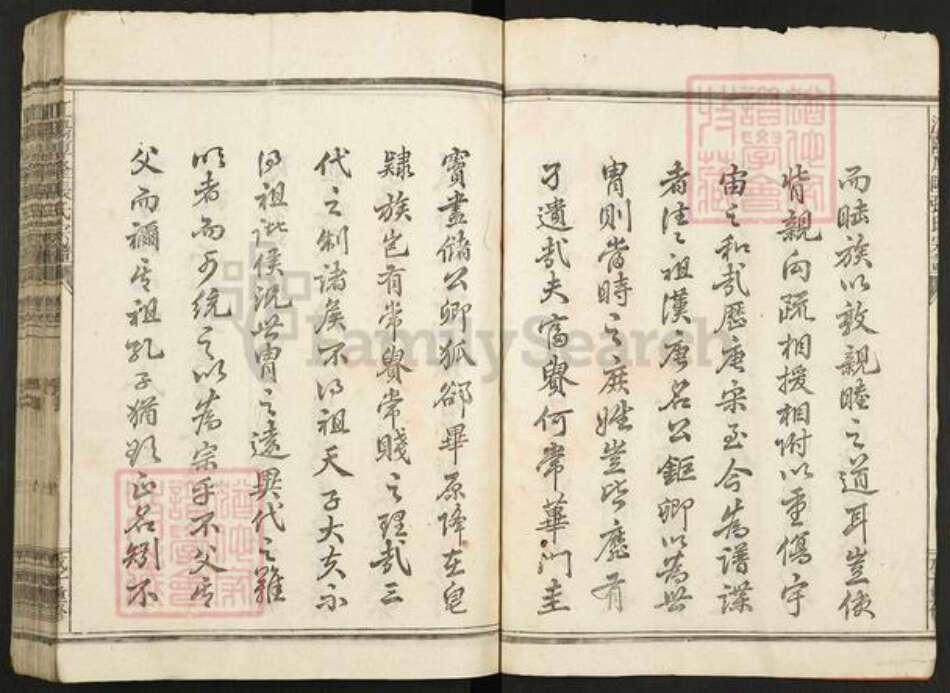 而睦族以敦親睦之道耳豈使
背親向疏相援相附以重傷宇
宙之和哉歷唐宋至今為譜諜
者往之祖漢唐名公鉅卿以為世
胄則當時之庶姓豈皆靡有
孑遺哉夫富貴何常華門圭
竇盡儲公卿狐郤畢原降在皂
隸族豈有常貴常賤之理哉三
代之制諸侯不得祖天子大夫不
得祖諸侯況世胄之遠異代之難
以者而可統之以為宗乎不父其
父而禰其祖孔子猶欲正名矧不
FamilySearch